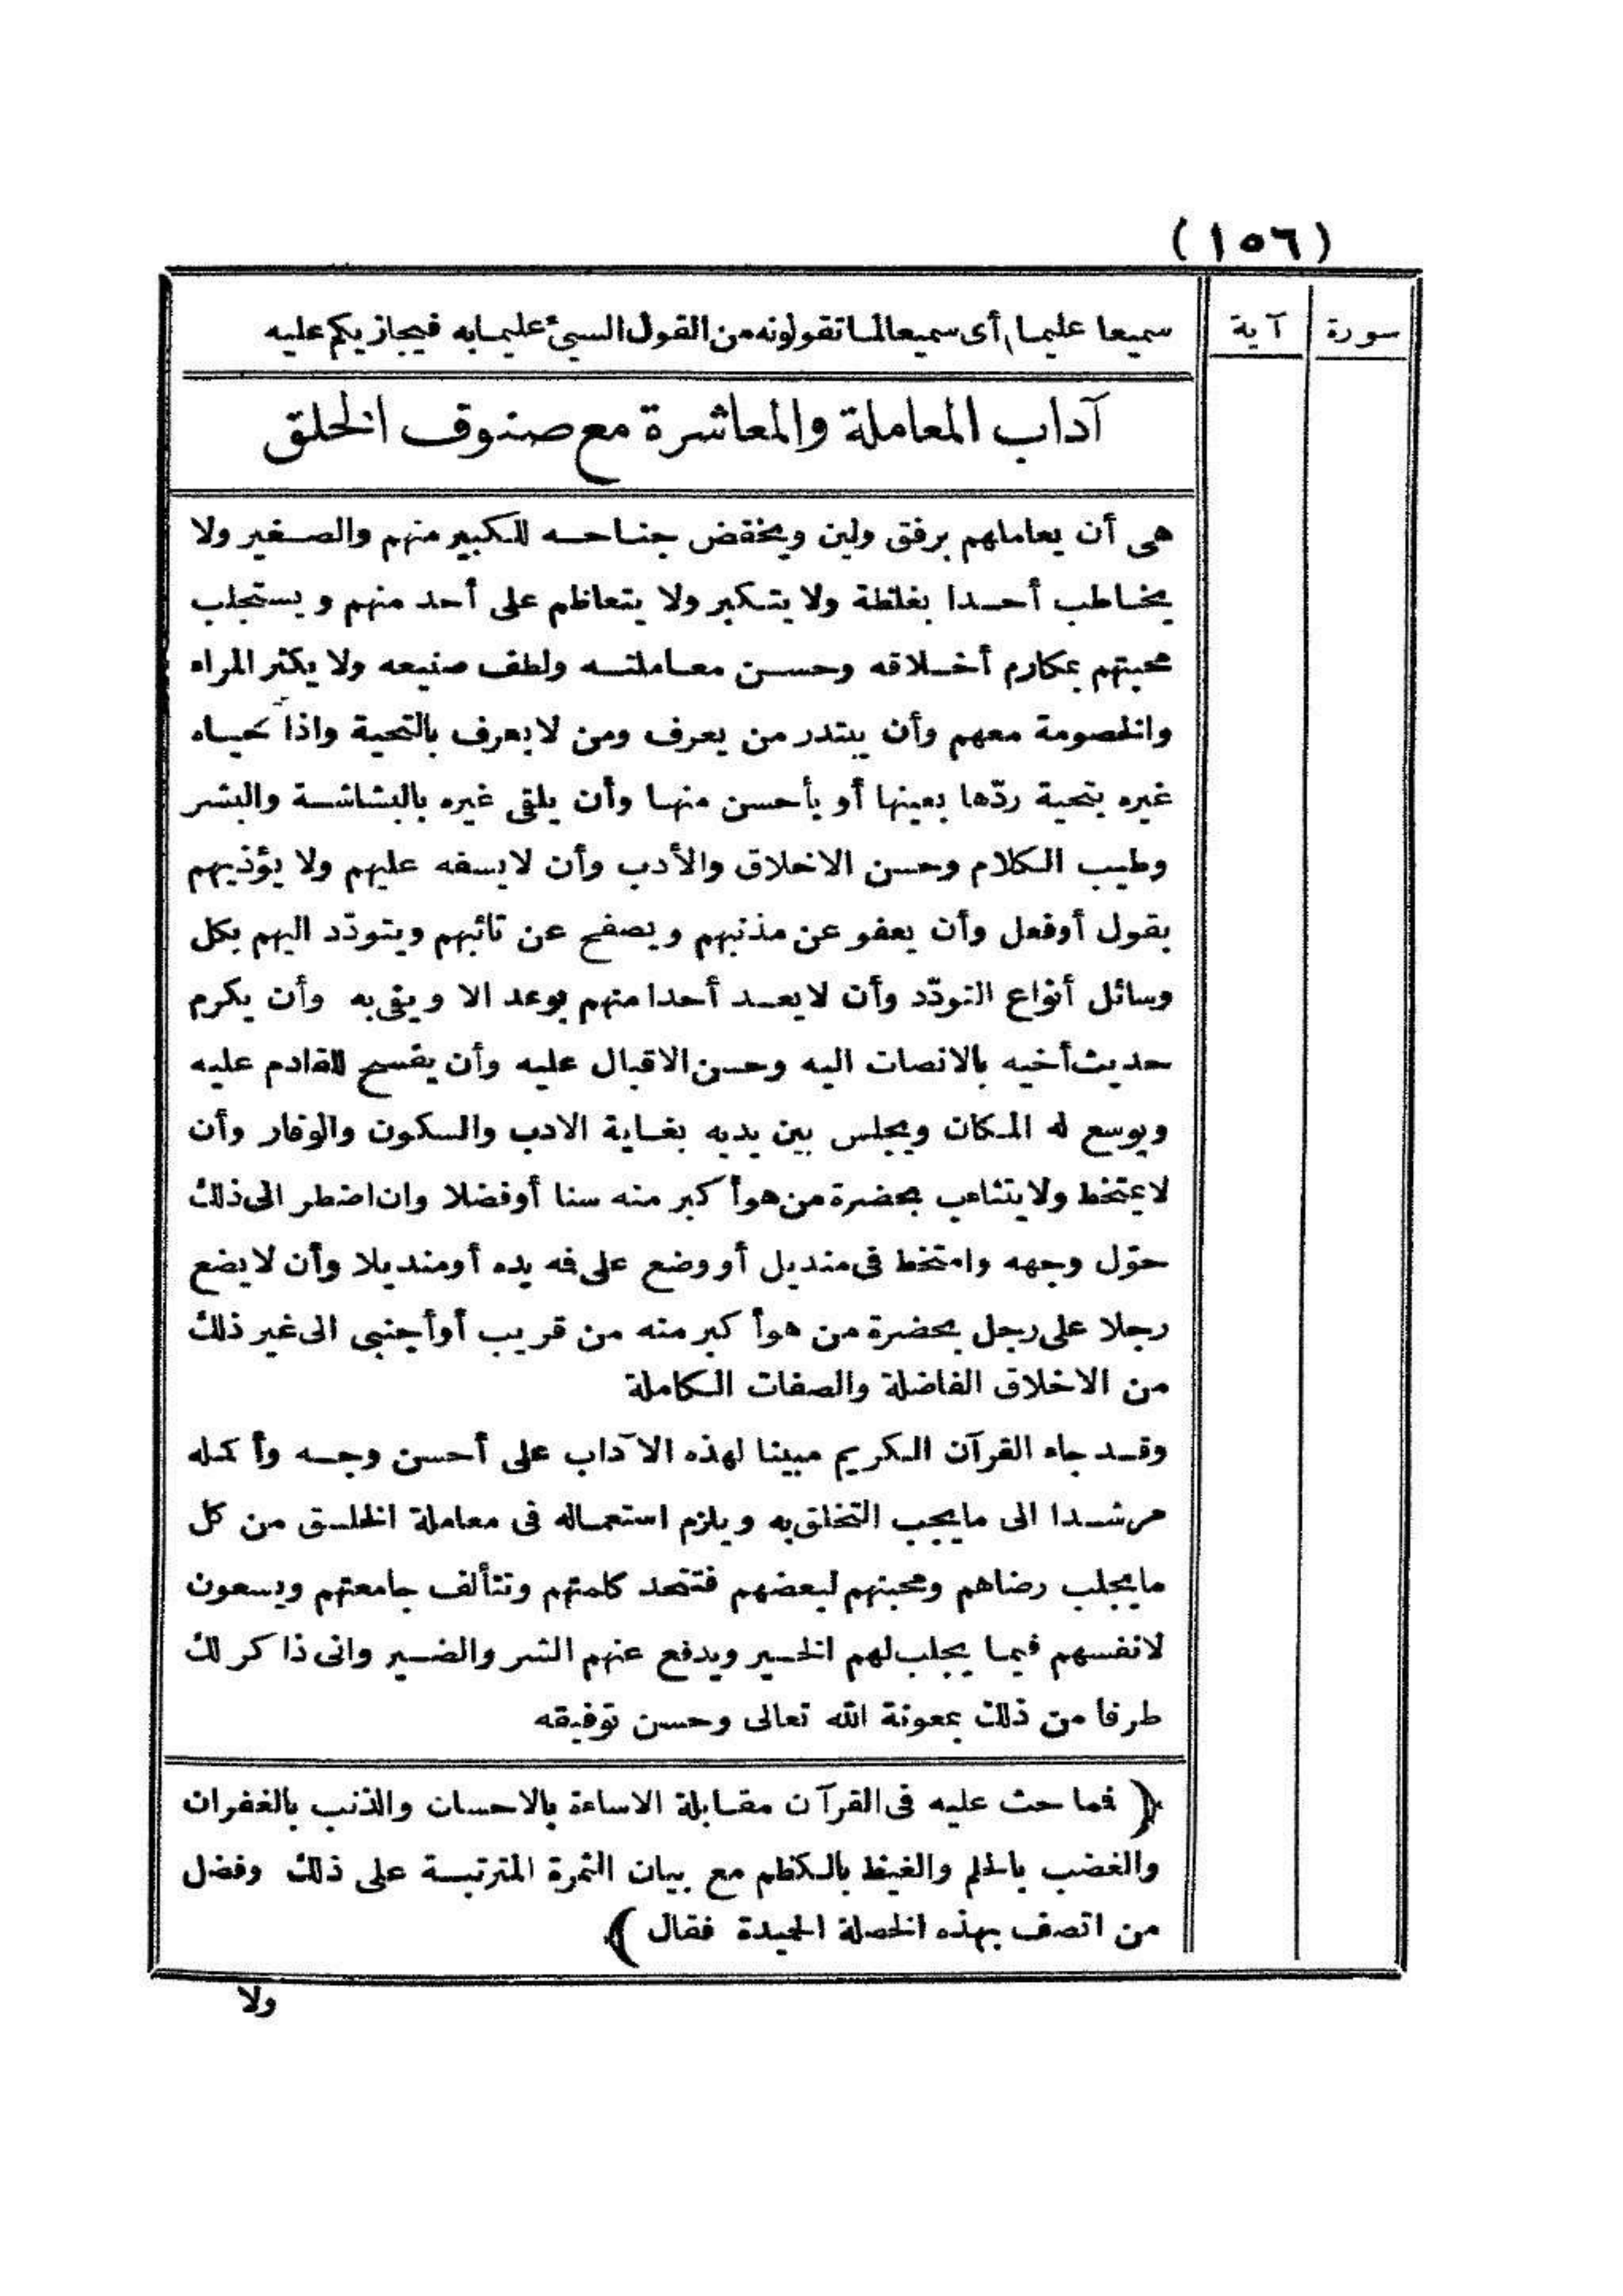 (١٥٦)
سورة
آية
سميعا عليما أى سميعا لما تقولونه من القول السيئ عليما به فيجازيكم عليه
آداب المعاملة والمعاشرة مع صنوف الخلق
هى أن يعاملهم برفق ولين ويخفض جناحه للكبير منهم والصغير ولا
يخاطب أحدا بغلظة ولا يتكبر ولا يتعاظم على أحد منهم ويستجلب
محبتهم بمكارم أخلاقه وحسن معاملته ولطف صنيعه ولا يكثر المراء
والخصومة معهم وأن يبتدر من يعرف ومن لا يعرف بالتحية واذا حياه
غيره بتحية ردّها بعينها أو بأحسن منها وأن يلقى غيره بالبشاشة والبشر
وطيب الكلام وحسن الاخلاق والأدب وأن لا يسفه عليهم ولا يؤذيهم
بقول أو فعل وأن يعفو عن مذنبهم ويصفح عن تائبهم ويتودّد اليهم بكل
وسائل أنواع التودّد وأن لا يعد أحدا منهم بوعد الا ويفى به وأن يكرم
حديث أخيه بالانصات اليه وحسن الاقبال عليه وأن يفسح للقادم عليه
ويوسع له المكان ويجلس بين يديه بغاية الادب والسكون والوقار وأن
لا يمتخط ولا يتثاءب بحضرة من هو أكبر منه سنا أو فضلا وان اضطر الى ذلك
حوّل وجهه وامتخط فى منديل أو وضع على فه يده أو منديلا وأن لا يضع
رجلا على رجل بحضرة من هو أكبر منه من قريب أو أجنبى الى غير ذلك
من الاخلاق الفاضلة والصفات الكاملة
وقد جاء القرآن الكريم مبينا لهذه الآداب على أحسن وجه وأكمله
مرشدا الى ما يجب التخلق به ويلزم استعماله فى معاملة الخلق من كل
ما يجلب رضاهم ومحبتهم لبعضهم فتتحد كلمتهم وتتألف جامعتهم ويسعون
لانفسهم فيما يجلب لهم الخير ويدفع عنهم الشر والضير وانى ذاكر لك
طرفا من ذلك بمعونة الله تعالى وحسن توفيقه
﴿ فمما حث عليه فى القرآن مقابلة الاساءة بالاحسان والذنب بالغفران
والغضب بالحلم والغيظ بالكظم مع بيان الثمرة المترتبة على ذلك وفضل
من اتصف بهذه الخصلة الحميدة فقال ﴾
ولا